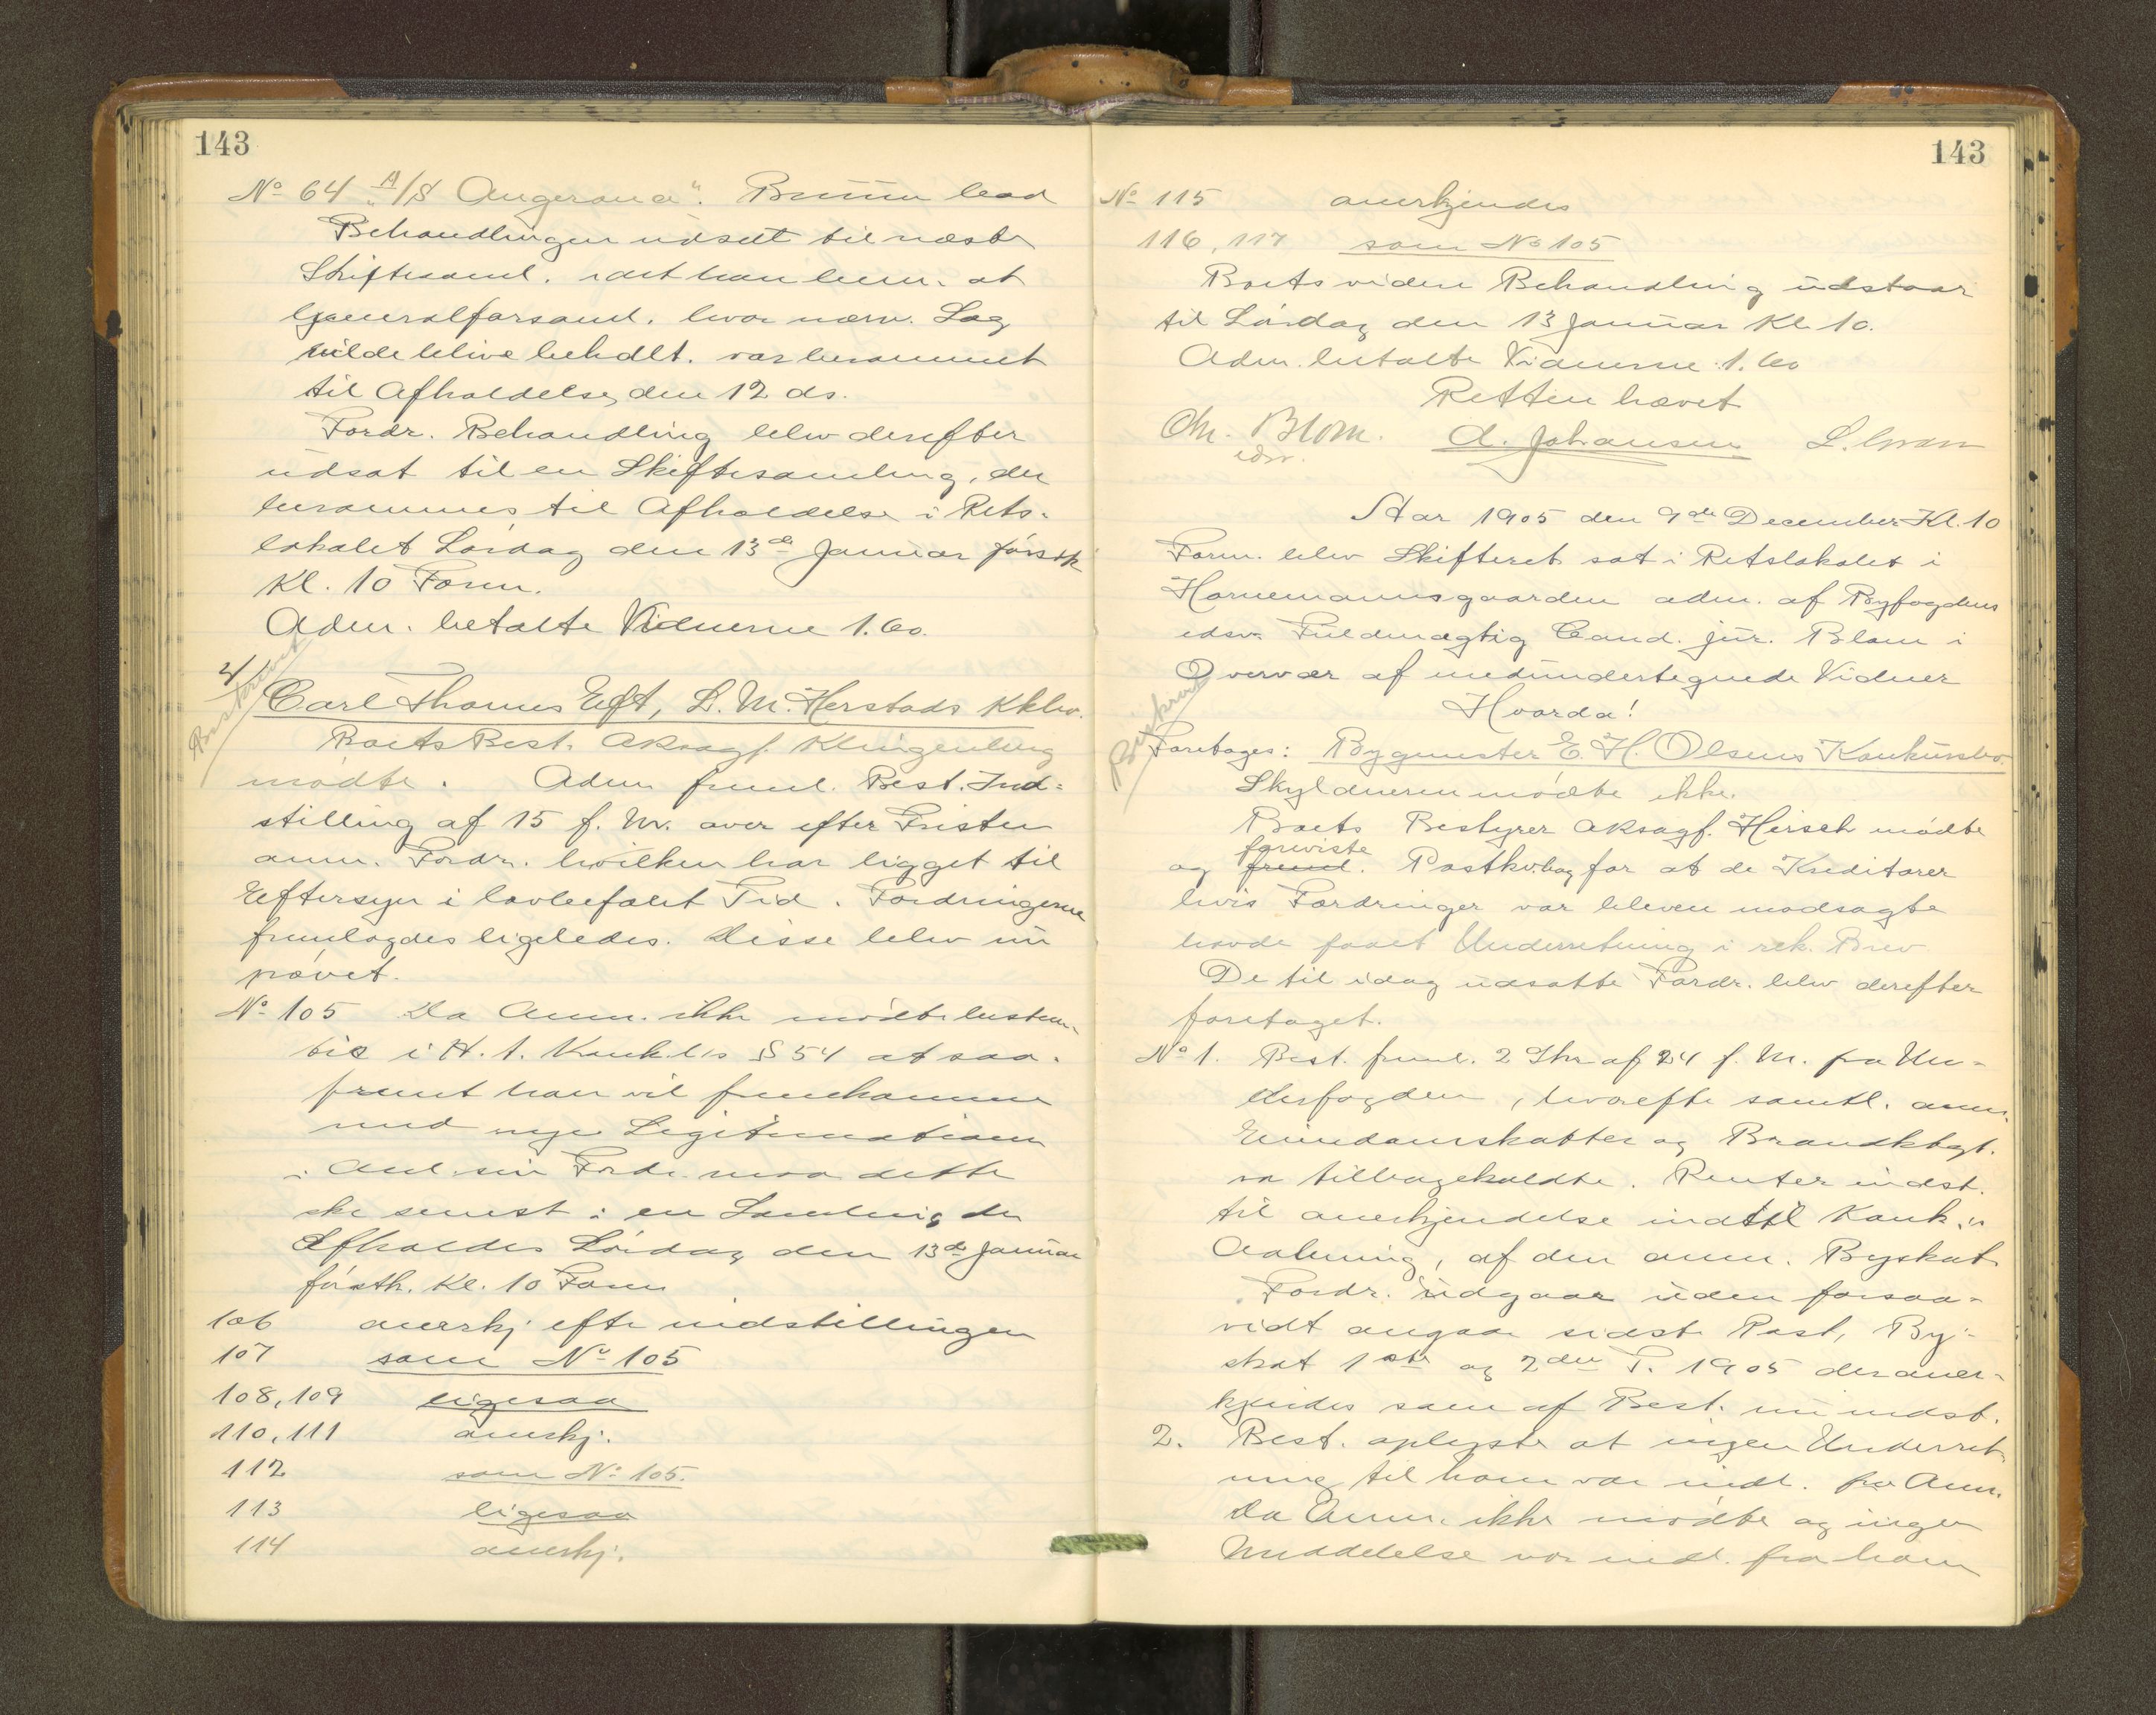 143
No 64 "A/S Angerona". Bruun bad
Behandlingen udsatt til næste
Skiftesaml. idet han bem. at
Generalforsaml. hvor nærv. Sag
vilde blive behdlt. var berammet
til Afholdelse den 12 ds.
Fordr. Behandling blev derefter
udsat til en Skiftesamling, der
berammes til Afholdelse i Rets-
lokalet Lördag den 13de Januar förstk
Kl. 10 Form.
Adm. betalte Vidnerne 1.60.
2/
Carl Thomes Eft, L. M. Herstads Kkbo.
Boets Best. Oksagf. Klingenberg
mödte. Adm freml. Best. Ind-
stilling af 15 f. M. over efter Fristen
anm. Fordr. hvilken har ligget til
Eftersyn i lovbefalet Tid. Fordringerne
fremlagdes ligeledes. Disse blev nu
prövet.
No 105 Da Anm. ikke mödte bestem-
tes i H. t. Konk.l's § 54 at saa-
fremt han vil fremkomme
med nye Legitimationer
i Anl. sin Fordr. maa dette
ske senest i en Samling der
Afholdes Lördag den 13de Januar
förstk. Kl. 10 Form
106 anerkj efter indstillingen
107 som No 105
108, 109 ligesaa
110, 111 anerkj.
112 som No 105.
113 ligesaa
114 anerkj.
143
No 115 anerkjendes
116, 117 som No 105
Boets videre Behandling udstaar
til Lördag den 13 Januar Kl. 10.
Adm. betalte Vidnerne 1.60
Retten hævet
Chr. Blom. A. Johansen L.
edsv.
Aar 1905 den 9de December Kl. 10
Form. blev Skifteret sat i Retslokalet i
Hornemannsgaarden adm. af Byfogdens
edsv. Fuldmægtig Cand. jur. Blom i
Overvær af medundertegnede Vidner
Hvorda!
Foretages: Bygmester E. H. Olsens Konkursbo.
Skyldneren mödte ikke.
Boets Bestyrer Oksagf. Hirsch mödte
foreviste
og freml. Postkv.bog for at de Kreditorer
hvis Fordringer var bleven modsagte
havde faaet Underretning i rek. Brev
De til idag udsatte Fordr. blev derefter
foretaget.
No 1. Best. freml. 2 Skr af 24 f. M. fra Un-
derfogden, hvorefter samtl. anm.
Eiendomsskatter og Brandktgt.
var tilbagekaldte. Renter indst.
til anerkjendelse indtil Konk.'s
Aabning, af den anm. Byskat
Fordr. udgaar uden forsaa-
vidt angaar sidste Post, By-
skat 1ste og 2den T. 1905 der aner-
kjendes som af Best. nu indst.
2. Best. oplyste at ingen Underret-
ning til ham var indl. fra Anm.
Da Anm. ikke mödte og ingen
Meddelelse var indl. fra ham